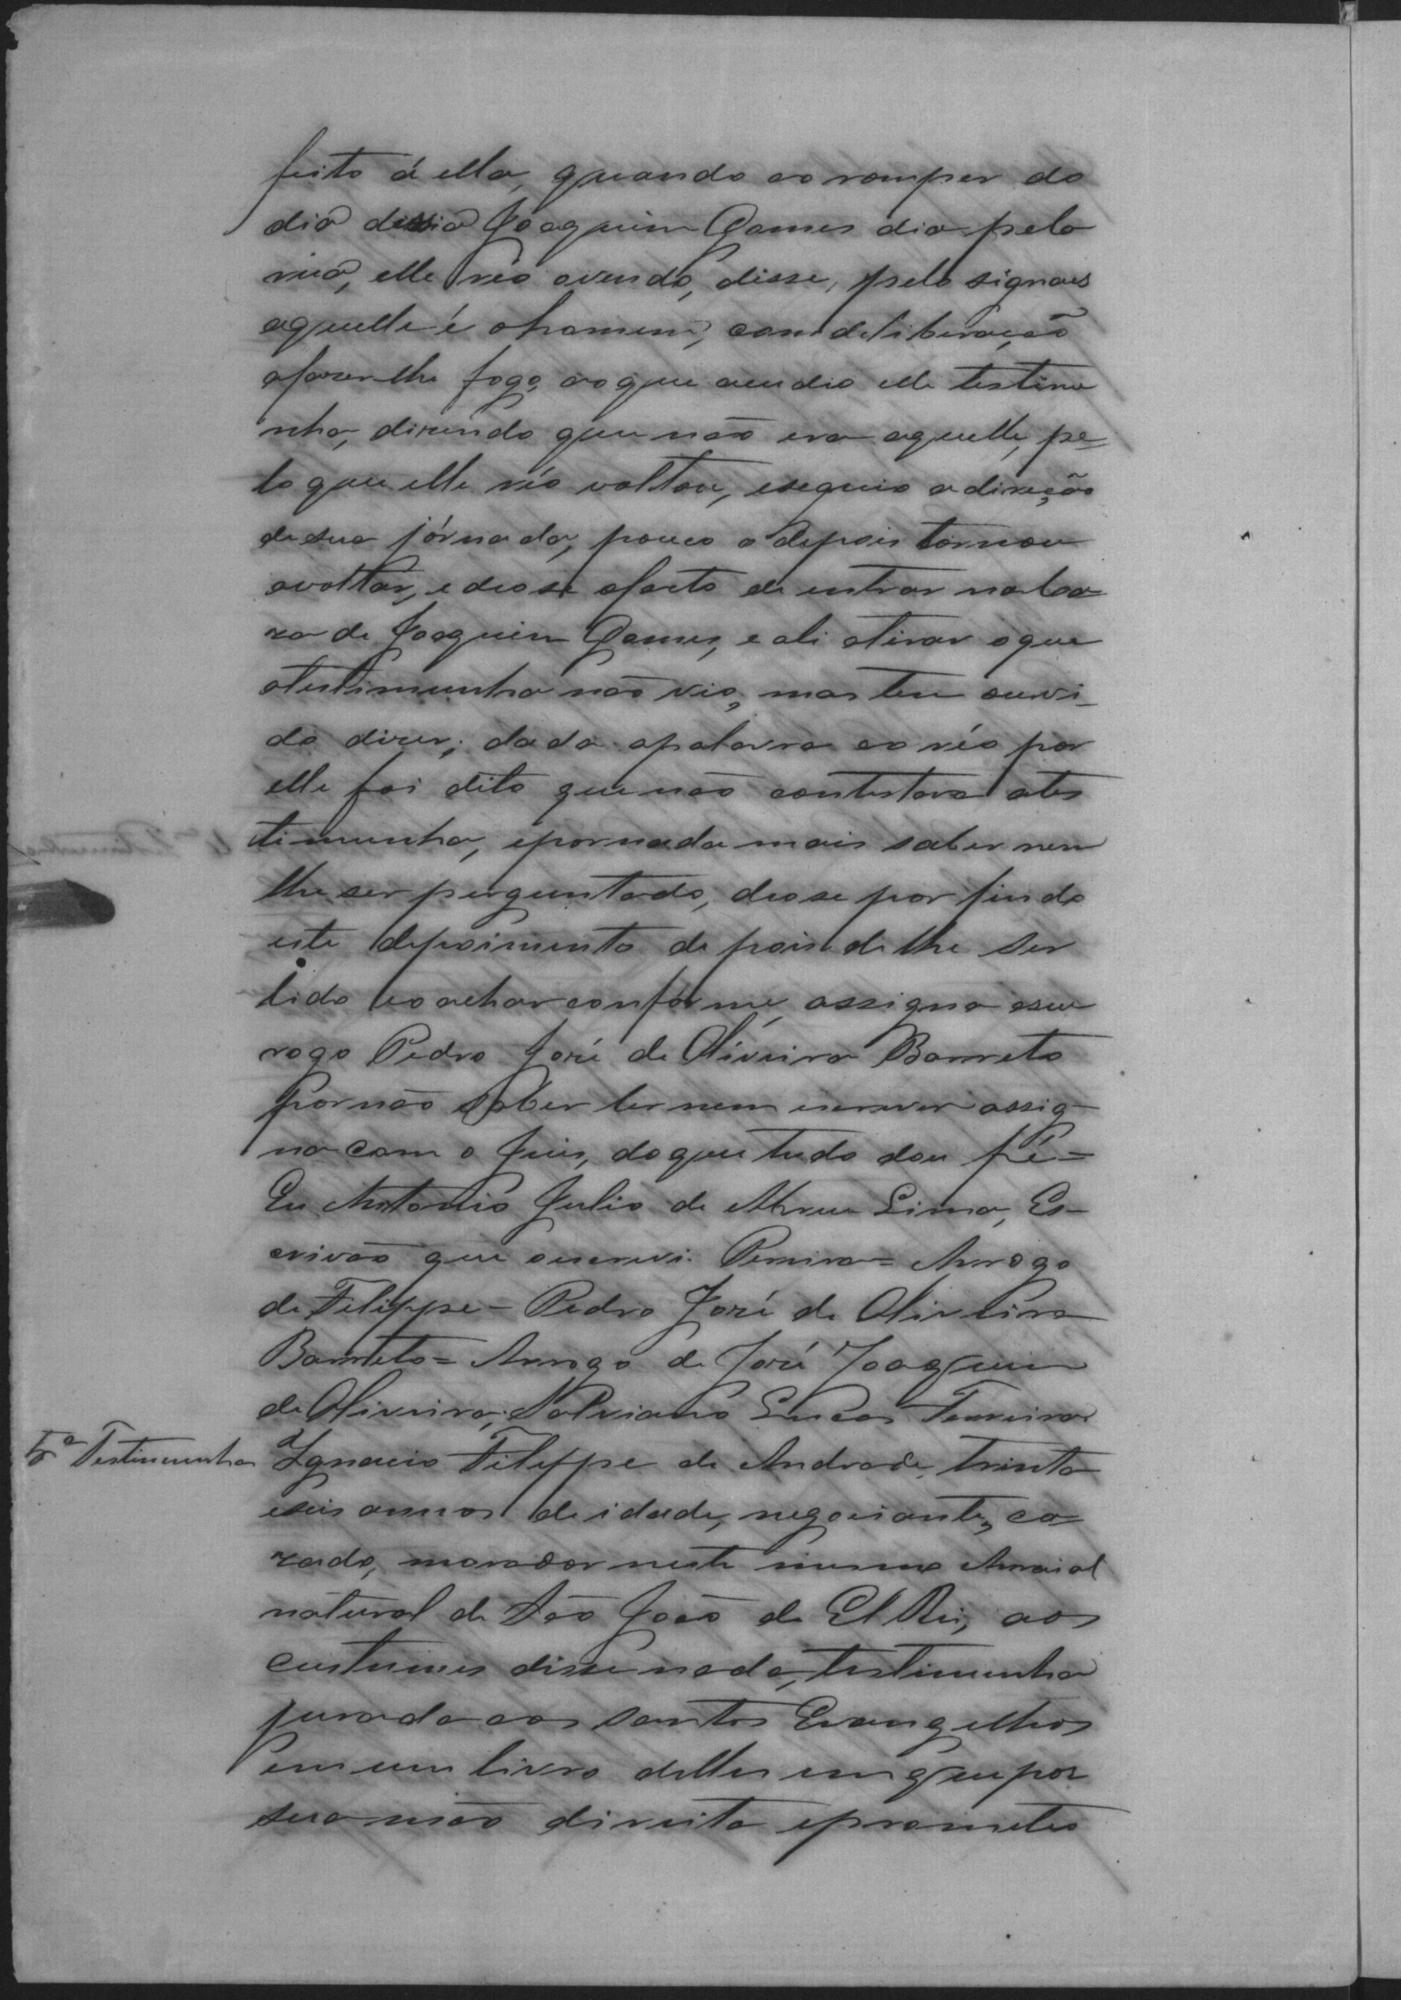 feito á ella, quando ao romper do
dia descia Joaquim Gomes dia pela
rua, elle réo avendo, disse, pelo signaes
aquelle é ohomem, com deliberação
afazerlhe fogo, aoque acudio elle testimu
nha, dizendo que não era aquelle, pe=
lo que elle réo voltou, eseguio adireção
desua jórnada, pouco o depois tornou
avoltar, e deose ofacto de entrar na ca=
za de Joaquim Gomes, e ali atirar oque
atestimunha não vio, mas tem ouvi-
do dizer; dada apalavra ao réo por
elle foi dito que não contestava ates
timunha, epornada mais saber nem
lhe ser perguntado, deose por findo
este depoimento depois de lhe ser
lido eo achar confórme, assigna aseu
rogo Pedro José de Oliveira Barreto
pornão saber ler nem escrever assig-
na com o Juis, doque tudo dou fé=
Eu Antonio Julio de Abreu Lima, Es-
crivão que oescrevi. Pereira= Arrogo
de Filippe- Pedro José de Oliveira
Barreto= Arrogo de José Joaquim
de Oliveira; Salviano Lucas Ferreira
5ª Testimunha Ignacio Filippe de Andrade, trinta
eseis annos de idade, negociante, ca=
zado, morador neste mesmo Arraial
natural de São João de El Rei, aos
custumes disse nada, testimunha
jurada aos santos Evangelhos
em um livro delles em que por
sua mão direita eprometeo